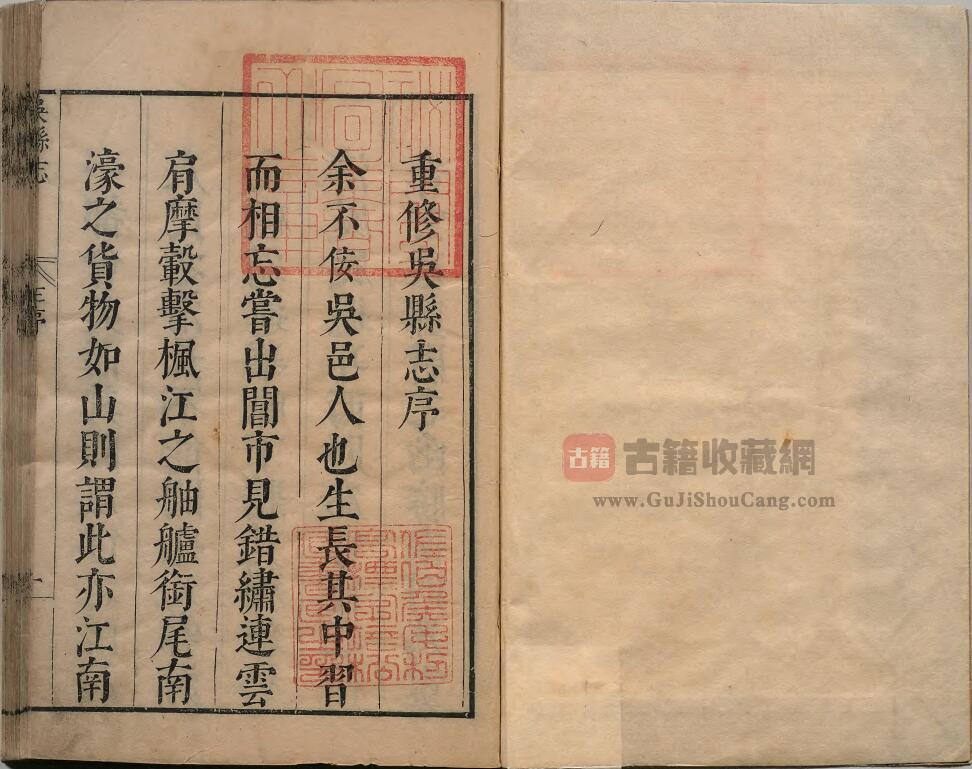 重修吳縣志序
余不佞吳邑人也生長其中習
而相忘嘗出閶市見錯繡連雲
肩摩轂擊楓江之舳艫銜尾南
濠之貨物如山則謂此亦江南
吳縣志
王序
一
古籍
古籍收藏網
www.GuJiShouCang.com